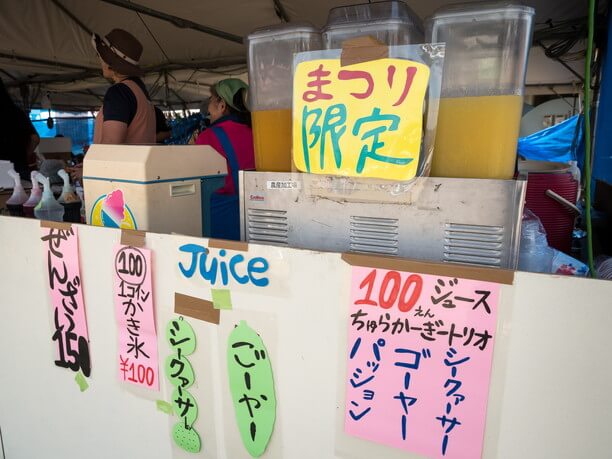 まつり
限定
農産加工場
ぜんざい
150
100
1コイン
かき氷
¥100
Juice
シークァーサー
ごーやー
100 ジュース
えん
ちゅらかーぎートリオ
シークァーサー
ゴーヤー
パッション